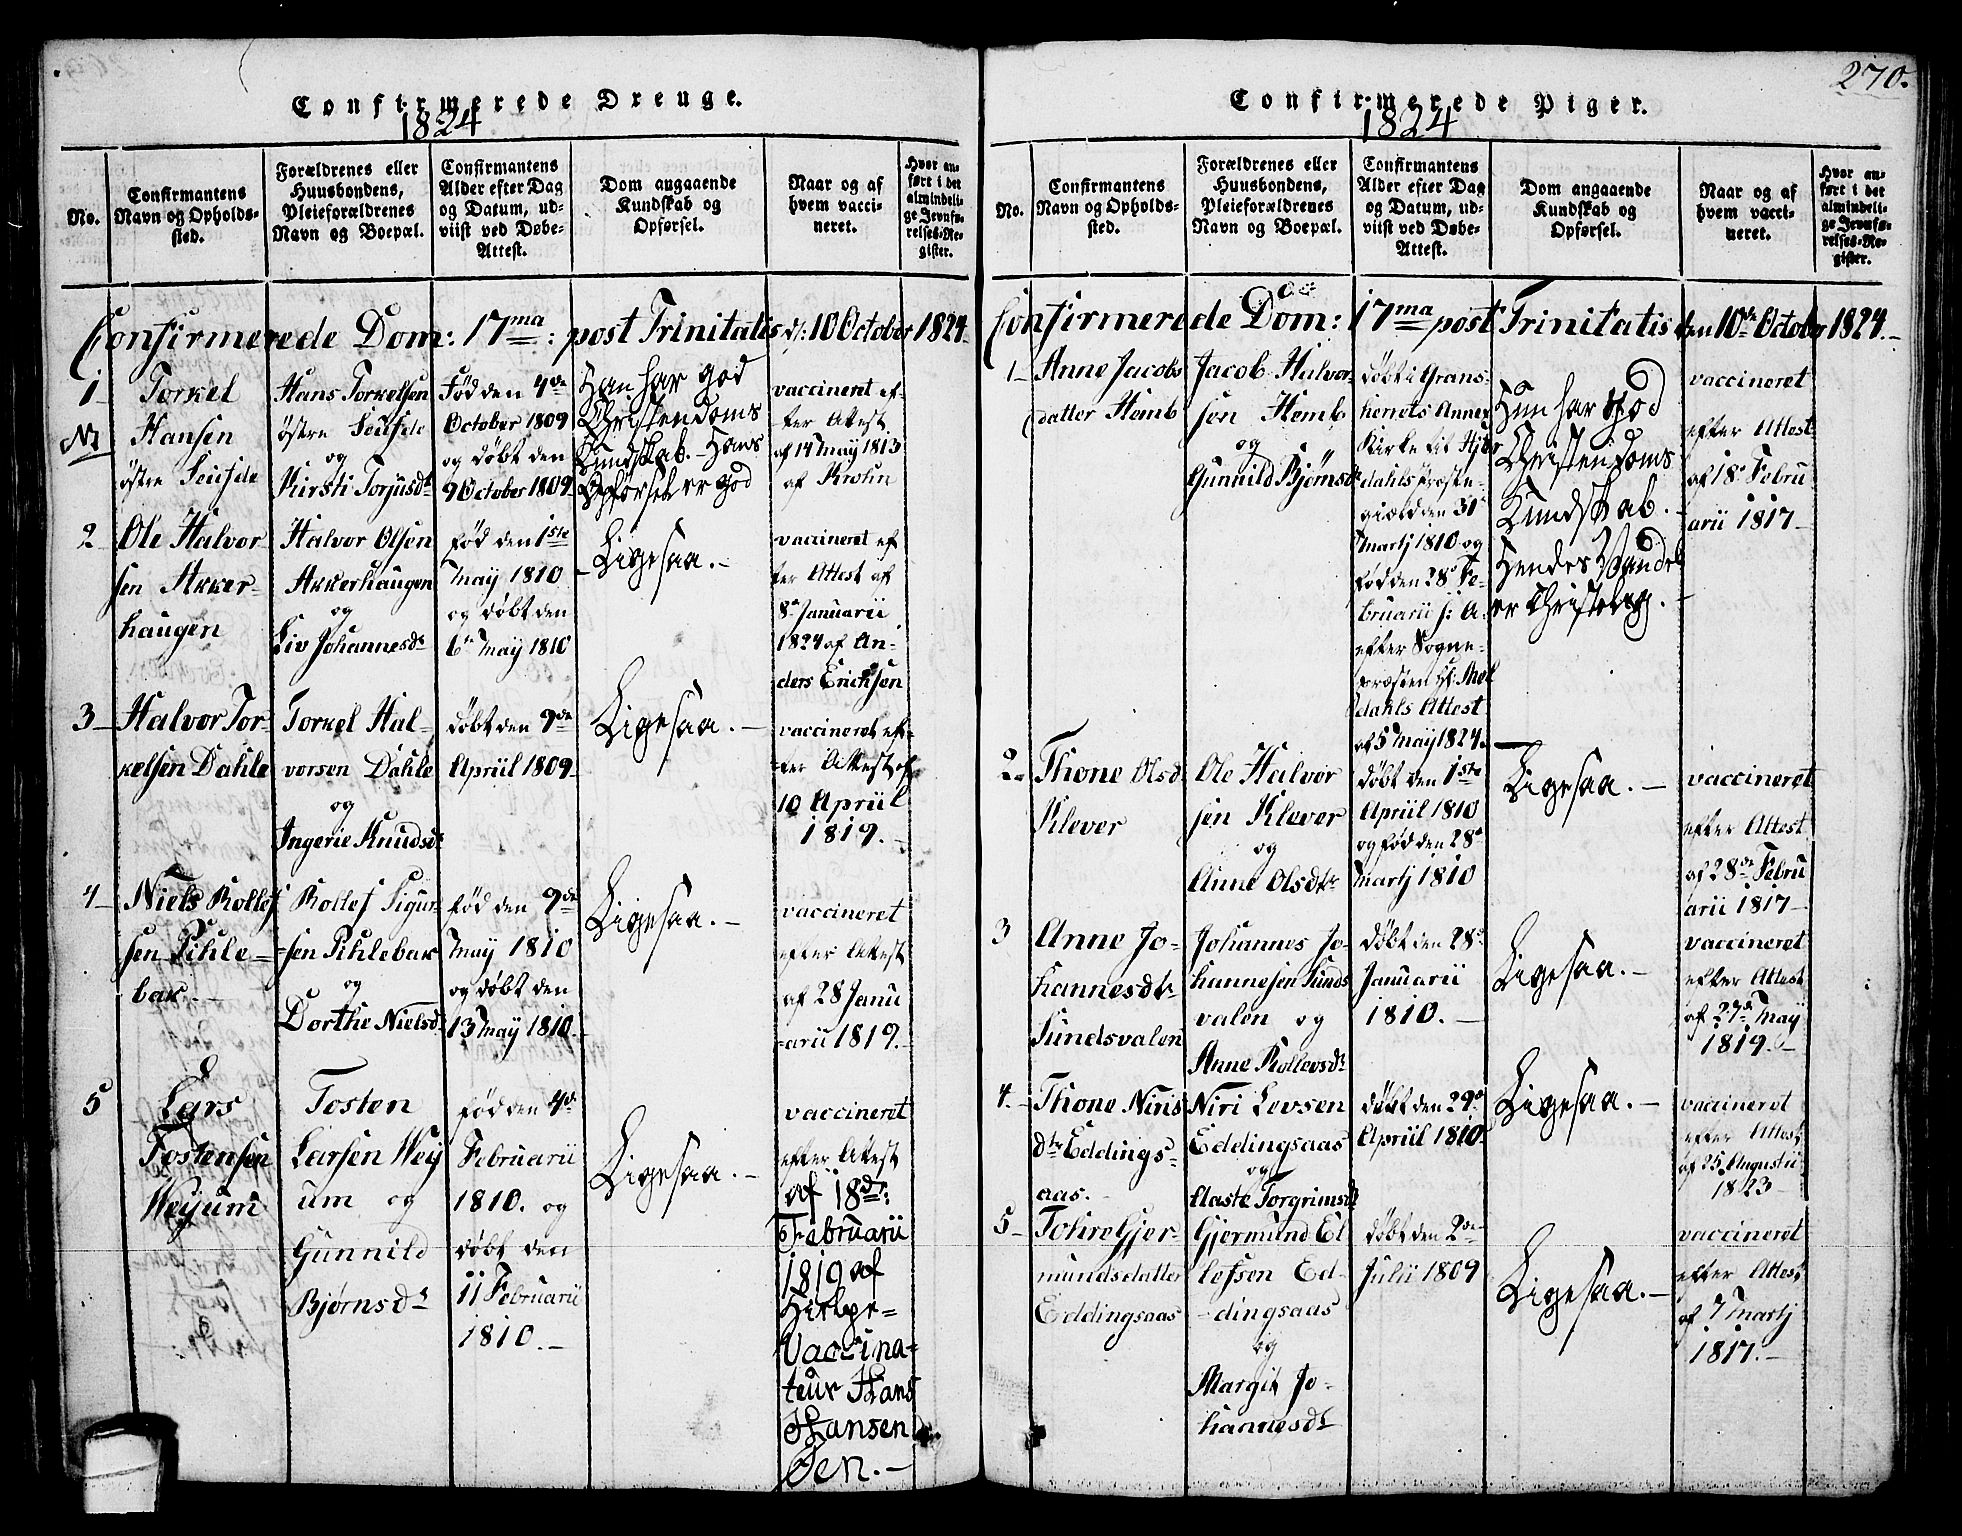 270.
Confirmerede Drenge.
1824
No.
Confirmantens
Navn og Opholds-
sted.
Forældrenes eller
Huusbondens,
Pleieforældrenes
Navn og Boepæl.
Confirmantens
Alder efter Dag
og Datum, ud-
viist ved Døbe-
Attest.
Dom angaaende
Kundskab og
Opførsel.
Naar og af
hvem vacci-
neret.
Hvor an-
ført i det
almindeli-
ge Jevnfø-
relses-Re-
gister.
Confirmerede Dom: 17ma: post Trinitatis d: 10 October 1824
1
No
Torkel
Hansen
østre
Hans Torkelsen
østre
og
Kirsti Torjusdr
Fød den 4de
October 1809
og døbt den
9 October 1809
Han har god
Christendoms
Kundskab. Hans
Opførsel er god
vaccineret ef-
ter Attest
af 14 May 1813
af Krohn
2
Ole Halvor
sen Akker-
haugen
Halvor Olsen
Akkerhaugen
og
Liv Johannesdr
fød den 1ste
May 1810
og døbt den
6te May 1810
Ligesaa. -
vaccineret ef
ter Attest af
8de Januarii
1824 af An-
ders Ericksen
3
Halvor Tor-
kelsen Dahle
Torkel Hal-
vorsen Dahle
og
Ingerie Knudsdr
døbt den 9de
Apriil 1809
Ligesaa. -
vaccineret ef-
ter Attest af
10 Apriil
1819. -
4
Niels Rollef
sen Pihle-
bak. -
Rollef Sigur-
sen Pihlebak
og
Dorthe Nielsd.
fød den 9de
May 1810
og døbt den
13 May 1810.
Ligesaa. -
vaccineret
efter Attest
af 28 Janu
arii 1819. -
5
Lars
Tostensen
Weyum
Tosten
Larsen Wey
um og
Gunnild
Bjørnsdr
fød den 4de
Februarii
1810. og
døbt den
11 Februarii
1810. -
Ligesaa. -
vaccineret
efter Attest
af 18de:
Februarii
1819 af
Hielpe-
Vaccina-
teur Hans
Hansen
Øen. -
Confirmerede Piger.
1824
No.
Confirmantens
Navn og Opholds-
sted.
Forældrenes eller
Huusbondens,
Pleieforældrenes
Navn og Boepæl.
Confirmantens
Alder efter Dag
og Datum, ud-
viist ved Døbe-
Attest.
Dom angaaende
Kundskab og
Opførsel.
Naar og af
hvem vacci-
neret.
Hvor an-
ført i det
almindeli-
ge Jevnfø-
relses-Re-
gister.
Confirmerede Dom: 17ma post Trinitatis den 10de October 1824. -
1
Anne Jacobs
datter Homb
Jacob Halvor-
sen Homb
og
Gunnild Bjørnsdr
døbt i Grans-
herrets Annex
Kirke til Hjer
dahls Præste-
gield den 31
Martj 1810 og
fød den 28de Fe-
bruarii s: A.
efter Sogne-
præsten Hr:
dahls Attest
af 5 May 1824.
Hun har god
Christendoms
Kundskab. -
Hendes Vandel
er Christelig. -
vaccineret
efter Attest
af 18de Febru
arii 1817
2
Thone Olsd
Klever
Ole Halvor
sen Klever
og
Anne Olsdtr
døbt den 1ste
Apriil 1810
og fød den 28de
Martj 1810
Ligesaa. -
vaccineret
efter Attest
af 28de Febru
arii 1817
3
Anne Jo-
hannesdtr
Sundsvalen
Johannes Jo-
hannesen Sunds
valen og
Anne Rollevsdr
døbt den 28de
Januarii
1810. -
Ligesaa. -
vaccineret
efter Attest
af 27de May
1819. -
4. -
Thone Niris
dtr Eddings-
aas. -
Niri Levsen
Eddingsaas
og
Aaste Torgrimsdr
døbt den 29de
Apriil 1810.
Ligesaa. -
vaccineret
efter Attest
af 25 Augustii
1823
5
Tohre Gjer-
mundsdatter
Eddingsaas
Gjermund El
lefsen Ed-
dingsaas
og
Margit Jo-
hannesdr
døbt den 2den
Julii 1809
Ligesaa. -
vaccineret
efter Attest
af 7 Martj
1817. -